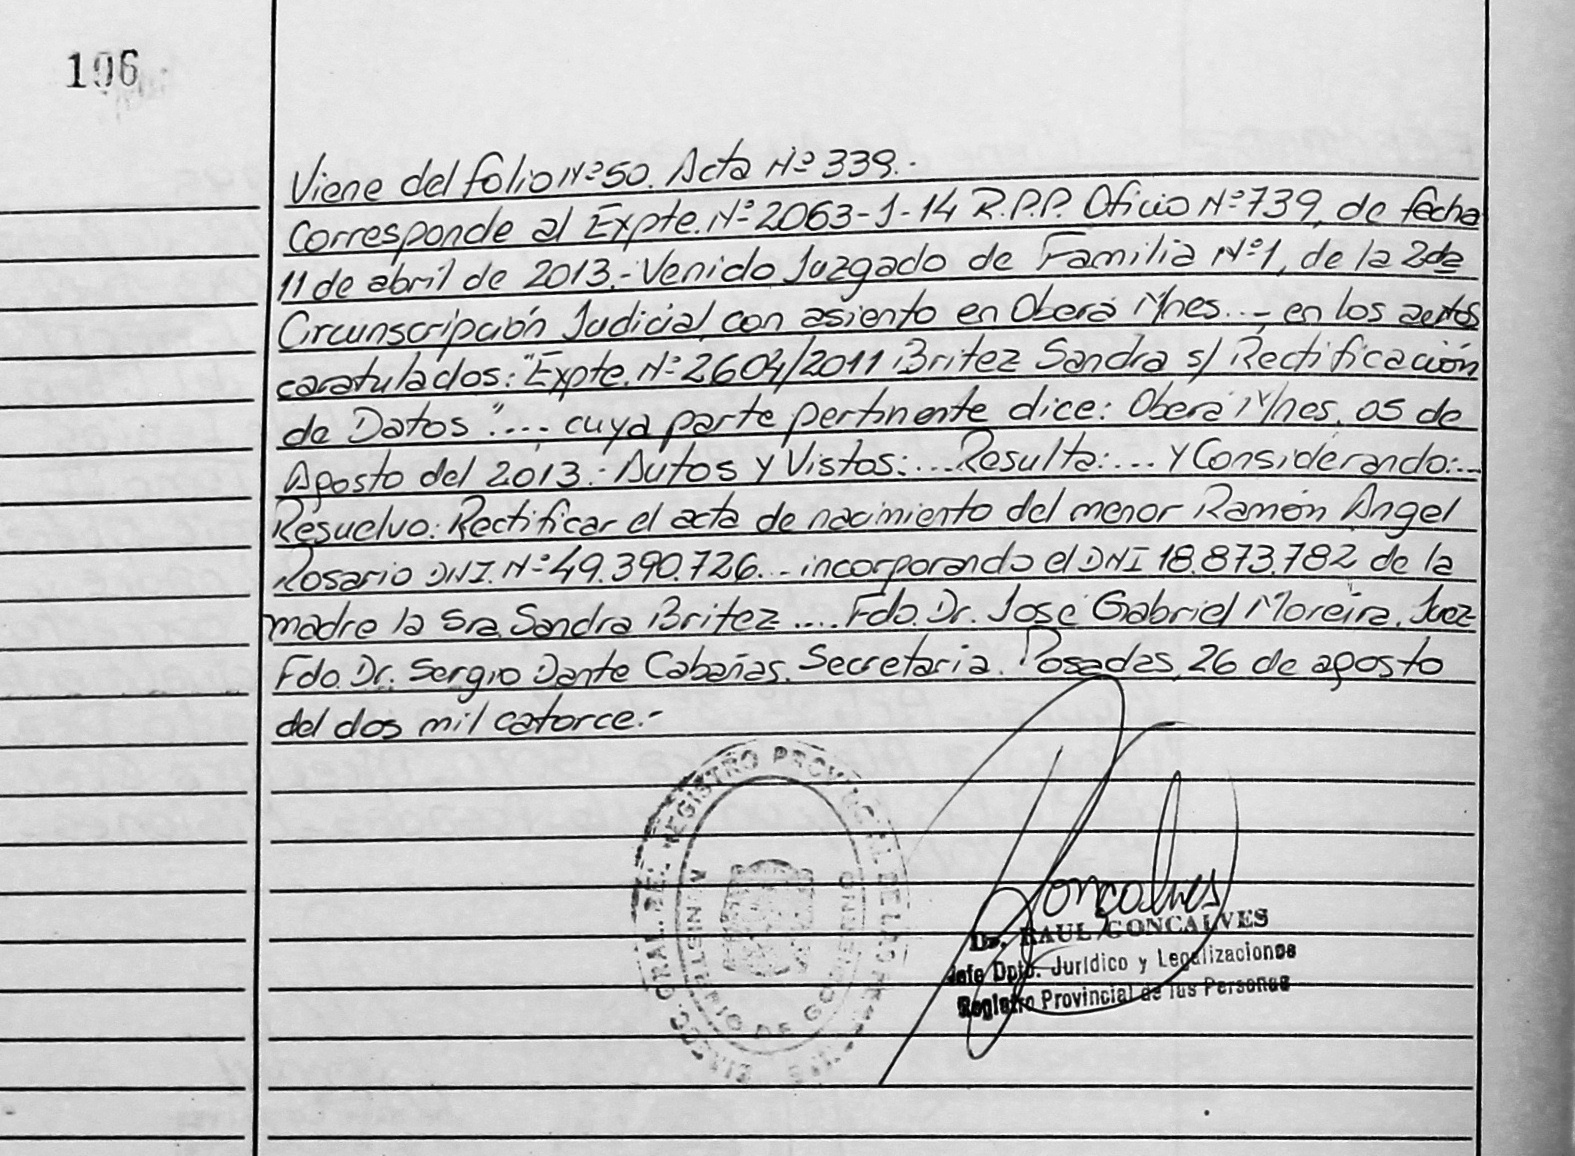 106
Viene del folio Nº 50. Acta Nº 339.-
Corresponde al Expte. Nº 2063-J-14 R.P.P. Oficio Nº 739, de fecha
11 de abril de 2013.- Venido Juzgado de Familia Nº 1, de la 2da
Circunscripción Judicial, con asiento en Oberá Mnes...- en los autos
caratulados: "Expte. Nº 2604/2011 Britez Sandra s/ Rectificación
de Datos".... cuya parte pertinente dice: Oberá Mnes, 05 de
Agosto del 2013.- Autos y Vistos:... Resulta:... Y Considerando:...
Resuelvo: Rectificar el acta de nacimiento del menor Ramón Angel
Rosario DNI. Nº 49.390.726... incorporando el DNI 18.873.782 de la
madre la Sra. Sandra Britez.... Fdo. Dr. José Gabriel Moreira. Juez
Fdo. Dr. Sergio Dante Cabañas. Secretaria. Posadas, 26 de agosto
del dos mil catorce.-
DIRECC. GRAL. DEL REGISTRO PROVINCIAL DE LAS PERSONAS
MINISTERIO DE GOBIERNO
Goncalves
Dr. RAUL GONCALVES
Jefe Dpto. Jurídico y Legalizaciones
Registro Provincial de las Personas